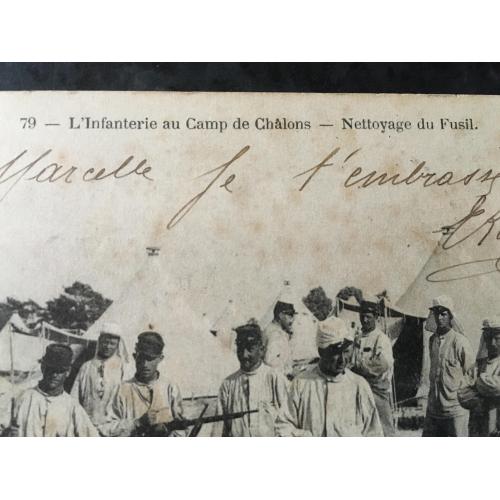 79 — L'Infanterie au Camp de Châlons — Nettoyage du Fusil.
Marcelle je t'embrasse